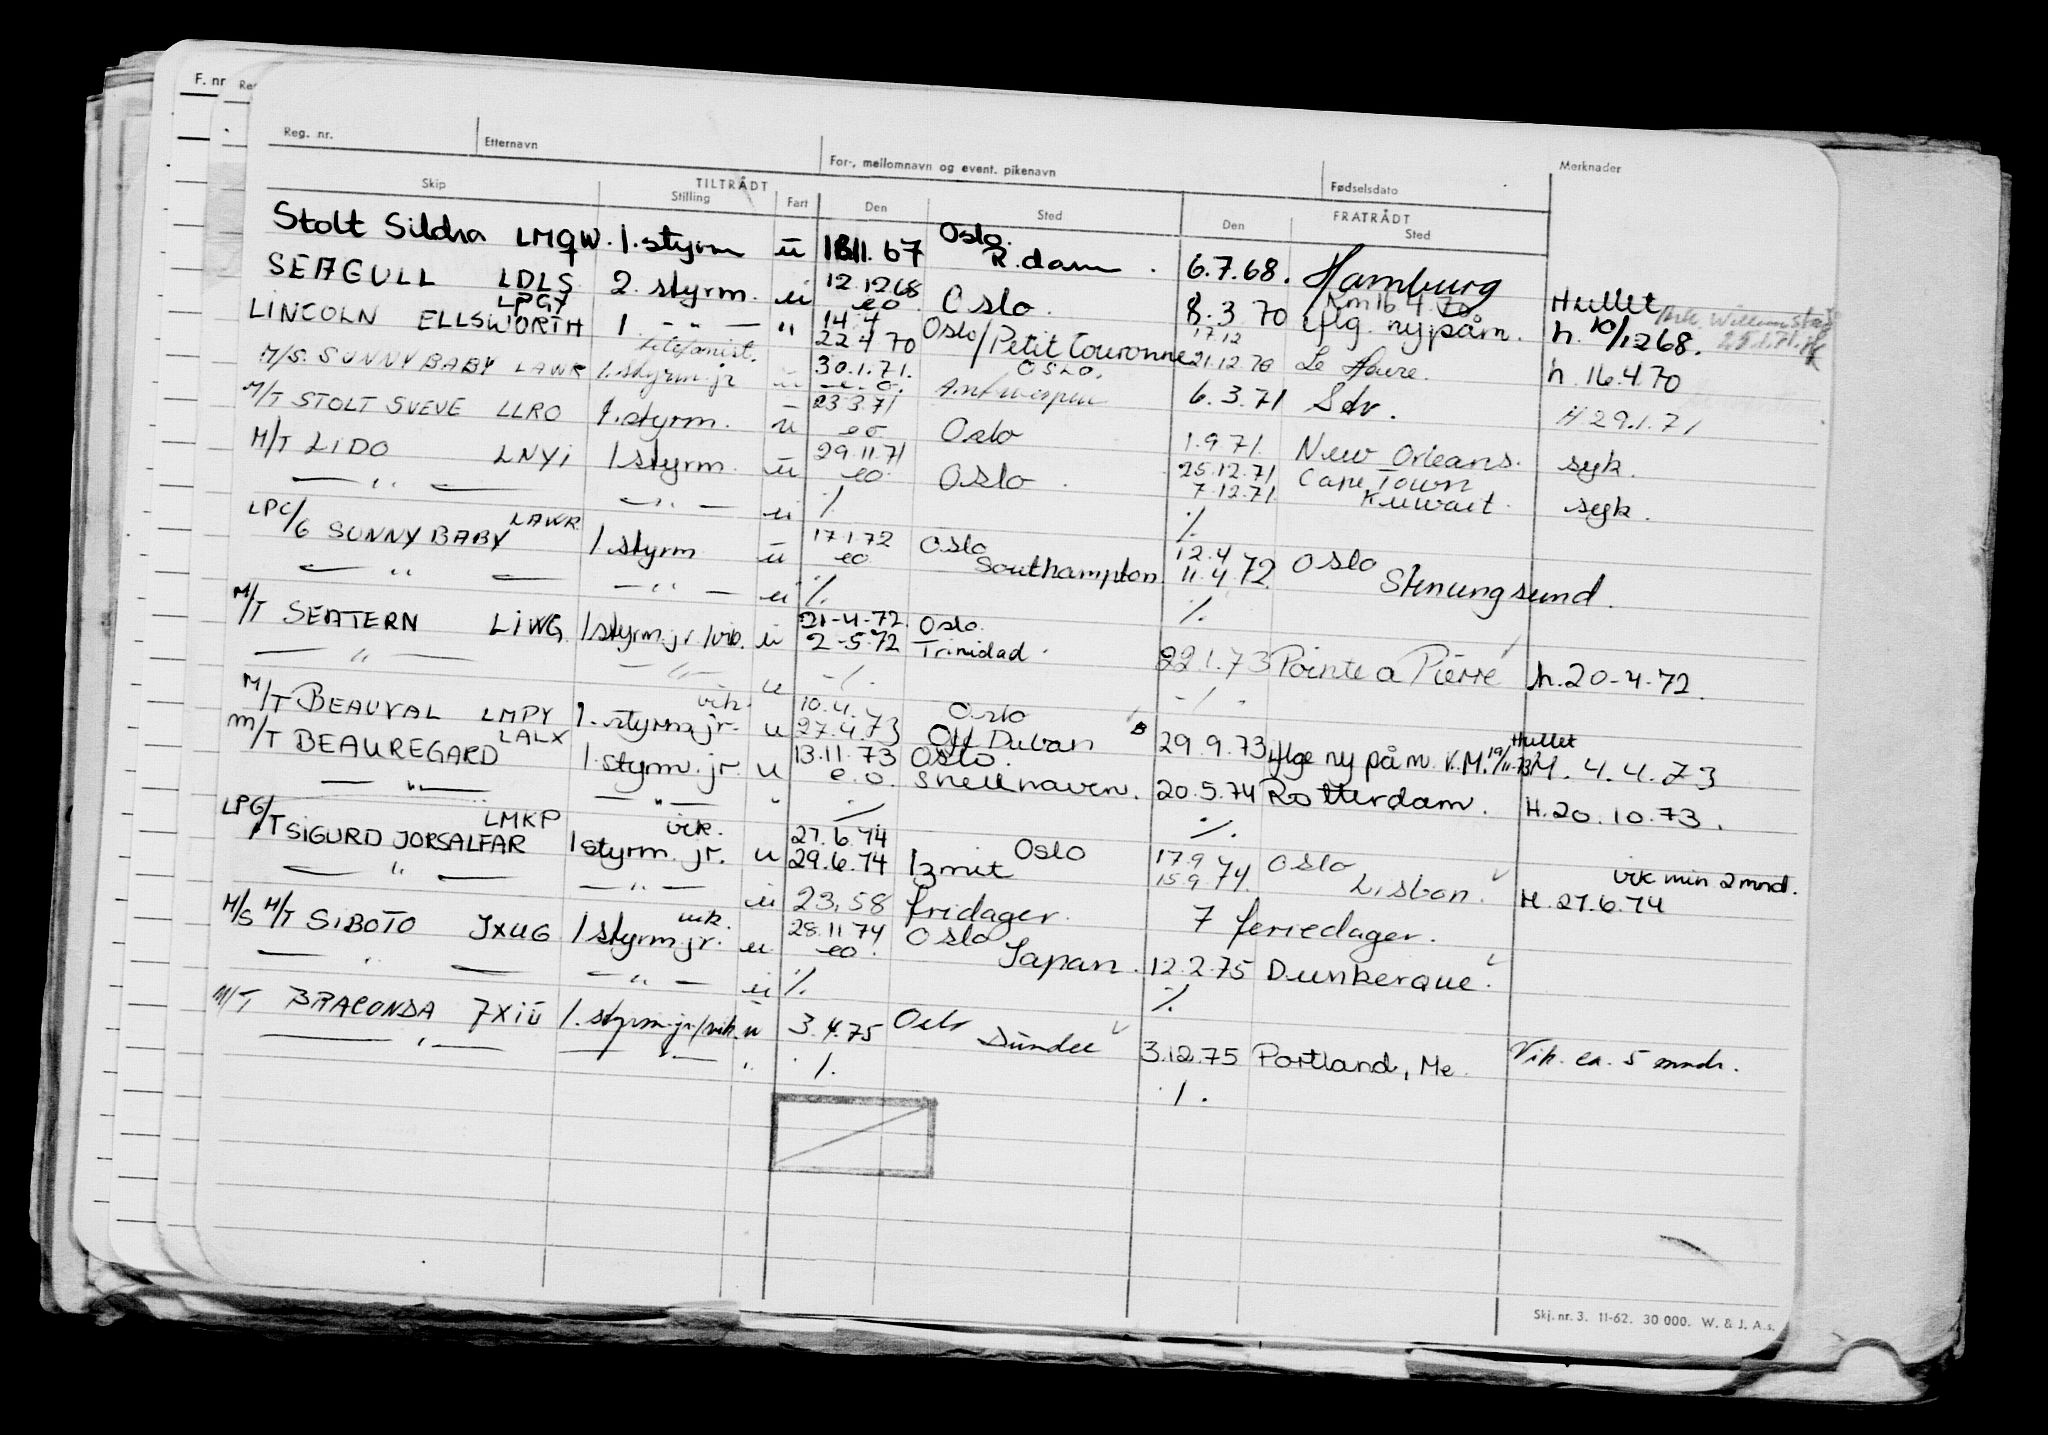 F. nr
Reg. nr. Etternavn For-, mellomnavn og event. pikenavn Fødselsdato Merknader
Skip TILTRÅDT Stilling Fart Den Sted FRATRÅDT Den Sted
Stolt Sildra LMQW. 1. styrm u 11. 67 Oslo. R.dam. 6.7.68. Hamburg
SEAGULL LDLS 2. styrm. u 12.1268 eo Oslo. 8.3 70 Hullet
LPGY 14.4
LINCOLN ELLSWORTH 1. - " - " 22 4 70 Oslo/Petit Couronne 17.12 21.12.70 Le Havre. h. 10/1268.
telefonist.
M/S. SUNNY BABY LAWR 1. styrm. jr u 30.1.71. e. o. OSLO. Antwerpen 6.3.71 Sdv. h. 16.4.70
M/T STOLT SVEVE LLRO 1. styrm. u 23.3.71 eo Oslo 1.9 71. New Orleans. H 29.1.71
M/T LIDO LNYI 1 styrm. u 29.11.71 eo. Oslo. 25.12.71 Cape Town syk.
— " — — " — u ./. 7.12.71 Kuwait. syk.
./.
LPG/G SUNNY BABY LAWR 1 styrm u 17.1.72 eo Oslo Southampton. 12.4 11.4.72 Oslo Stenungsund.
— " — — " — u ./. ./.
M/T SEATERN LIWG 1 styrm. jr /vik. u 21-4-72. 2-5-72 Oslo. Trinidad. 22 1.73 Pointe a Pierre h. 20-4-72.
— " — — " — u -/. -/-
M/T BEAUVAL LMPY 1. styrm jr. vik. u 10.4. 27.4.73 Oslo Off Dubai 29.9.73 iflge ny påm. Hullet H. 4.4.73
M/T BEAUREGARD LALX 1. styrm. jr. u 13.11.73 e.o. Oslo. Snellhaven. 20.5.74 Rotterdam. H. 20.10.73.
— " — — " — " ./. ./.
LPG/T SIGURD JORSALFAR LMKP 1 styrm. jr. vik. u 27.6.74 29.6.74 Oslo Izmit 17.9 15.9.74. Oslo Lisbon. vik min 2 mnd. H. 27.6.74
— " — — " — u 23,58 fridager. 7 feriedager.
M/S M/T SIBOTO JXUG 1 styrm jr. vik. u 28.11 74 eo. Oslo Japan. 12.2.75 Dunkerque.
— " — — " — u ./. ./.
M/T BRACONDA JXIU 1. styrm. jr/vik. u 3.4.75 Oslo Dundee 3.12.75 Portland, Me. Vik. ca. 5 mndr.
— " — — " — " ./. ./.
Skj. nr. 3. 11-62. 30 000. W. & J. A.s.